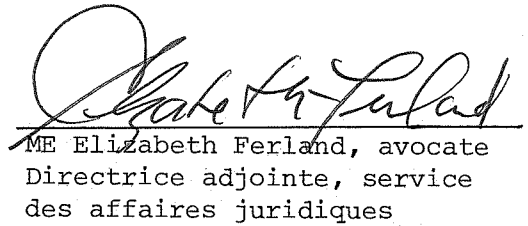 Elizabeth Ferland
ME Elizabeth Ferland, avocate
Directrice adjointe, service
des affaires juridiques